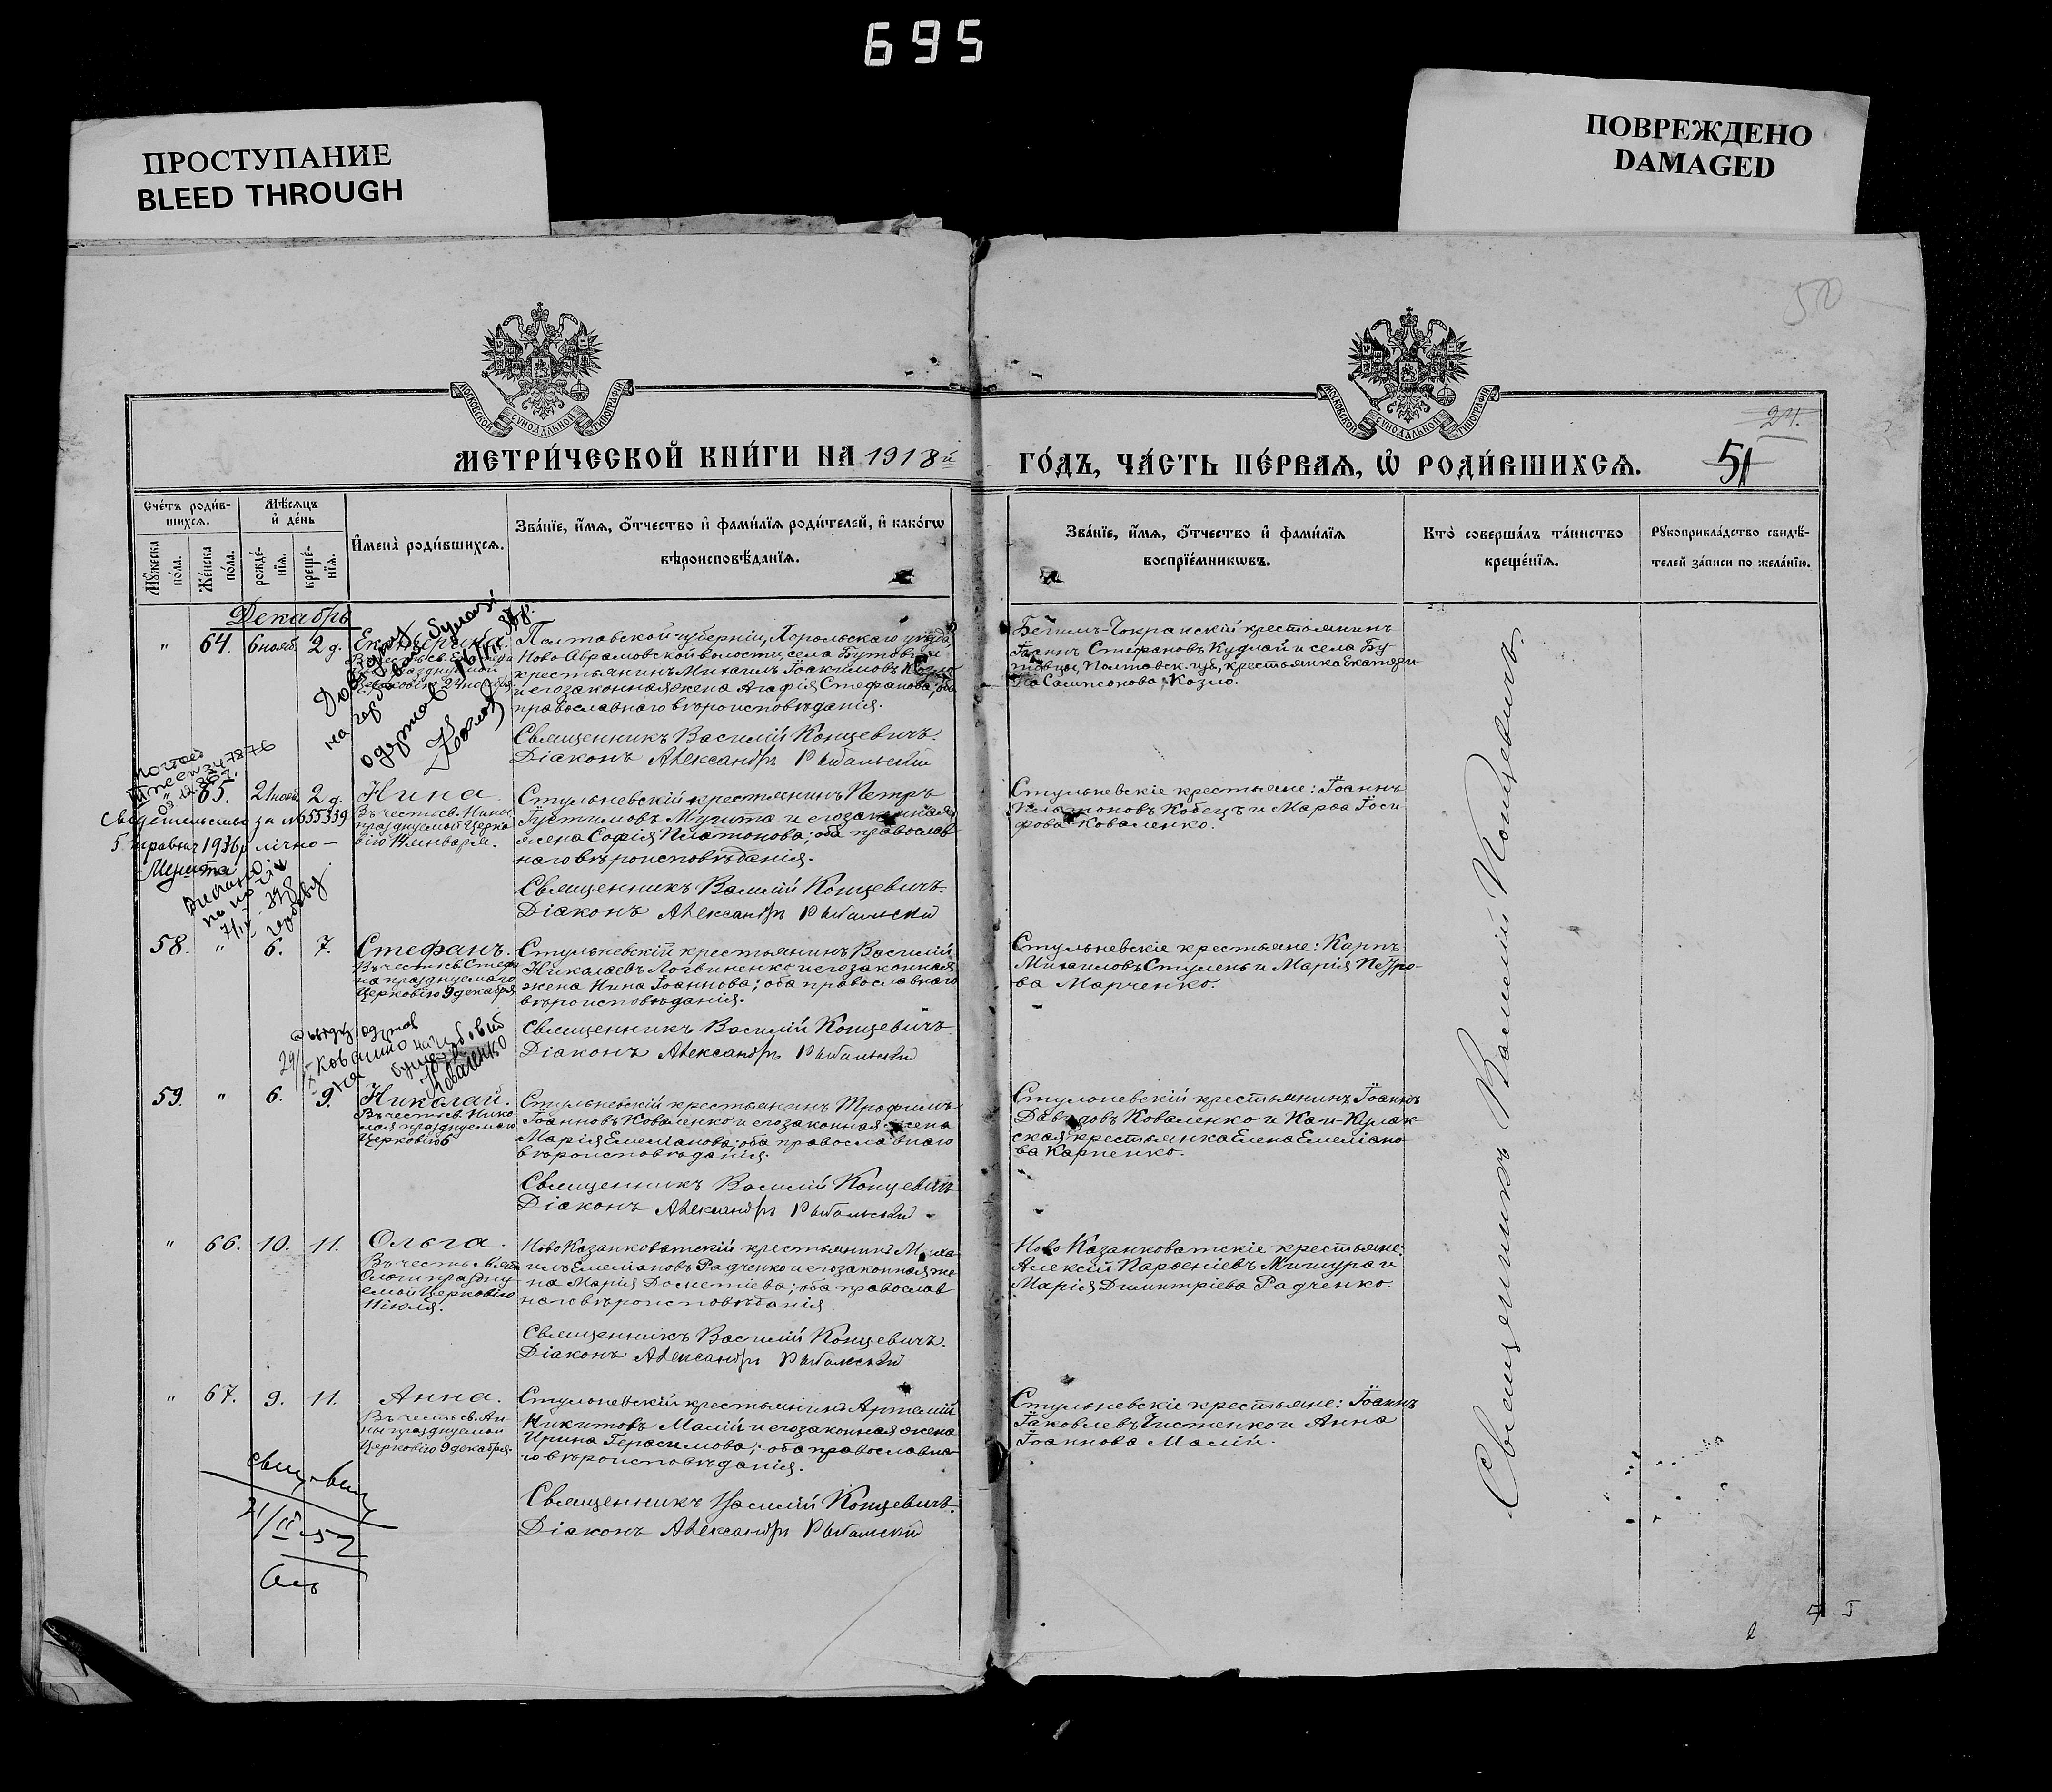 695
ПРОСТУПАНИЕ
BLEED THROUGH
ПОВРЕЖДЕНО
DAMAGED
50
МОСКОВСКОЙ СѴНОДАЛЬНОЙ ТИПОГРАФІИ
МОСКОВСКОЙ СѴНОДАЛЬНОЙ ТИПОГРАФІИ
24.
51
МЕТРИ́ЧЕСКОЙ КНИ́ГИ НА 1918й
ГО́ДЪ, ЧА́СТЬ ПЕ́РВАЯ, Ѡ҆ РОДИ́ВШИХСЯ.
Сче́тъ роди́в-
шихся.
Мѣ́сяцъ
и҆ де́нь
Мꙋ́жеска
по́ла.
Же́нска
по́ла.
рожде́-
нїя.
креще́-
нїя.
И҆мена̀ роди́вшихся.
Зва́нїе, и҆́мя, ѻ҆́тчество и҆ фами́лїя роди́телей, и҆ како́гѡ
вѣроисповѣ́данїя.
Зва́нїе, и҆́мя, ѻ҆́тчество и҆ фами́лїя
воспрїе́мникѡвъ.
Кто̀ соверша́лъ та́инство
креще́нїя.
Рꙋкоприкла́дство свидѣ́-
телей за́писи по жела́нїю.
Декабрь
" 64. 6 нояб. 2 д. Екатерина.
Церковію 24 ноября.
Полтавской губерніи, Хорольскаго уѣзда,
Ново-Аврамовской волости, села Бутов
крестьянинъ Михаилъ Іоакимовъ Козло
и его законная жена Агафія Стефанова; оба
православнаго вѣроисповѣданія.
Священникъ Василій Концевичъ.
Діаконъ Александръ Рыбальскій
Бегимъ-Чокракскій крестьянинъ
Іоаннъ Стефановъ Кудлай и села Бу
товцы, Полтавск. губ., крестьянка Екатери-
на Сампсонова Козло.
Довідку
на
одержав
" 65. 21 нояб. 2 д. Нина.
Въ честь св. Нины
празднуемой Церко
вію 14 января.
Стульневскій крестьянинъ Петръ
Іустимовъ Мушта и его законная
жена Софія Платонова; оба православ
наго вѣроисповѣданія.
Священникъ Василій Концевичъ.
Діаконъ Александръ Рыбальскій
Стульневскіе крестьяне: Іоаннъ
Платоновъ Кобецъ и Марѳа Іоси
фова Коваленко.
Свидетельство за № 655339
5 травня 1936 р лічно —
Мушта
58. " 6. 7. Стефанъ.
Въ честь св. Стефа
на празднуемаго
Церковію 9 декабря
Стульневскій крестьянинъ Василій
Николаевъ Логвиненко и его законная
жена Нина Іоаннова; оба православнаго
вѣроисповѣданія.
Священникъ Василій Концевичъ
Діаконъ Александръ Рыбальскій
Стульневскіе крестьяне: Карпъ
Михаиловъ Ступень и Марія Петро-
ва Марченко.
Коваленко
59. " 6. 9. Николай.
Въ честь св. Нико
лая празднуемаго
Церковію 6
Стульневскій крестьянинъ Трофимъ
Іоанновъ Коваленко и его законная жена
Марія Емеліанова; оба православнаго
вѣроисповѣданія.
Священникъ Василій Концевичъ
Діаконъ Александръ Рыбальскій
Стульневскій крестьянинъ Іоаннъ
Давидовъ Коваленко и Каи-Кулак-
ская крестьянка Елена Емеліано
ва Карпенко.
" 66. 10. 11. Ольга.
Въ честь святой
Ольги праздну
емой Церковію
11 іюля.
Ново Казанковатскій крестьянинъ Миха-
илъ Емеліановъ Радченко и его законная же
на Марія Дометіева; оба православ
наго вѣроисповѣданія.
Священникъ Василій Концевичъ.
Діаконъ Александръ Рыбальскій
Ново Казанковатскіе крестьяне:
Алексій Парѳеніевъ Мишура и
Марія Димитріева Радченко.
" 67. 9. 11. Анна.
Въ честь св. Ан-
ны празднуемой
Церковію 9 декабря.
Стульневскій крестьянинъ Артемій
Никитовъ Малій и его законная жена
Ирина Герасимова; оба православна-
го вѣроисповѣданія.
Священникъ Василій Концевичъ.
Діаконъ Александръ Рыбальскій
Стульневскіе крестьяне: Іоаннъ
Іаковлевъ Чистенко и Анна
Іоаннова Малій.
21/II-52
Священникъ Василій Концевичъ.